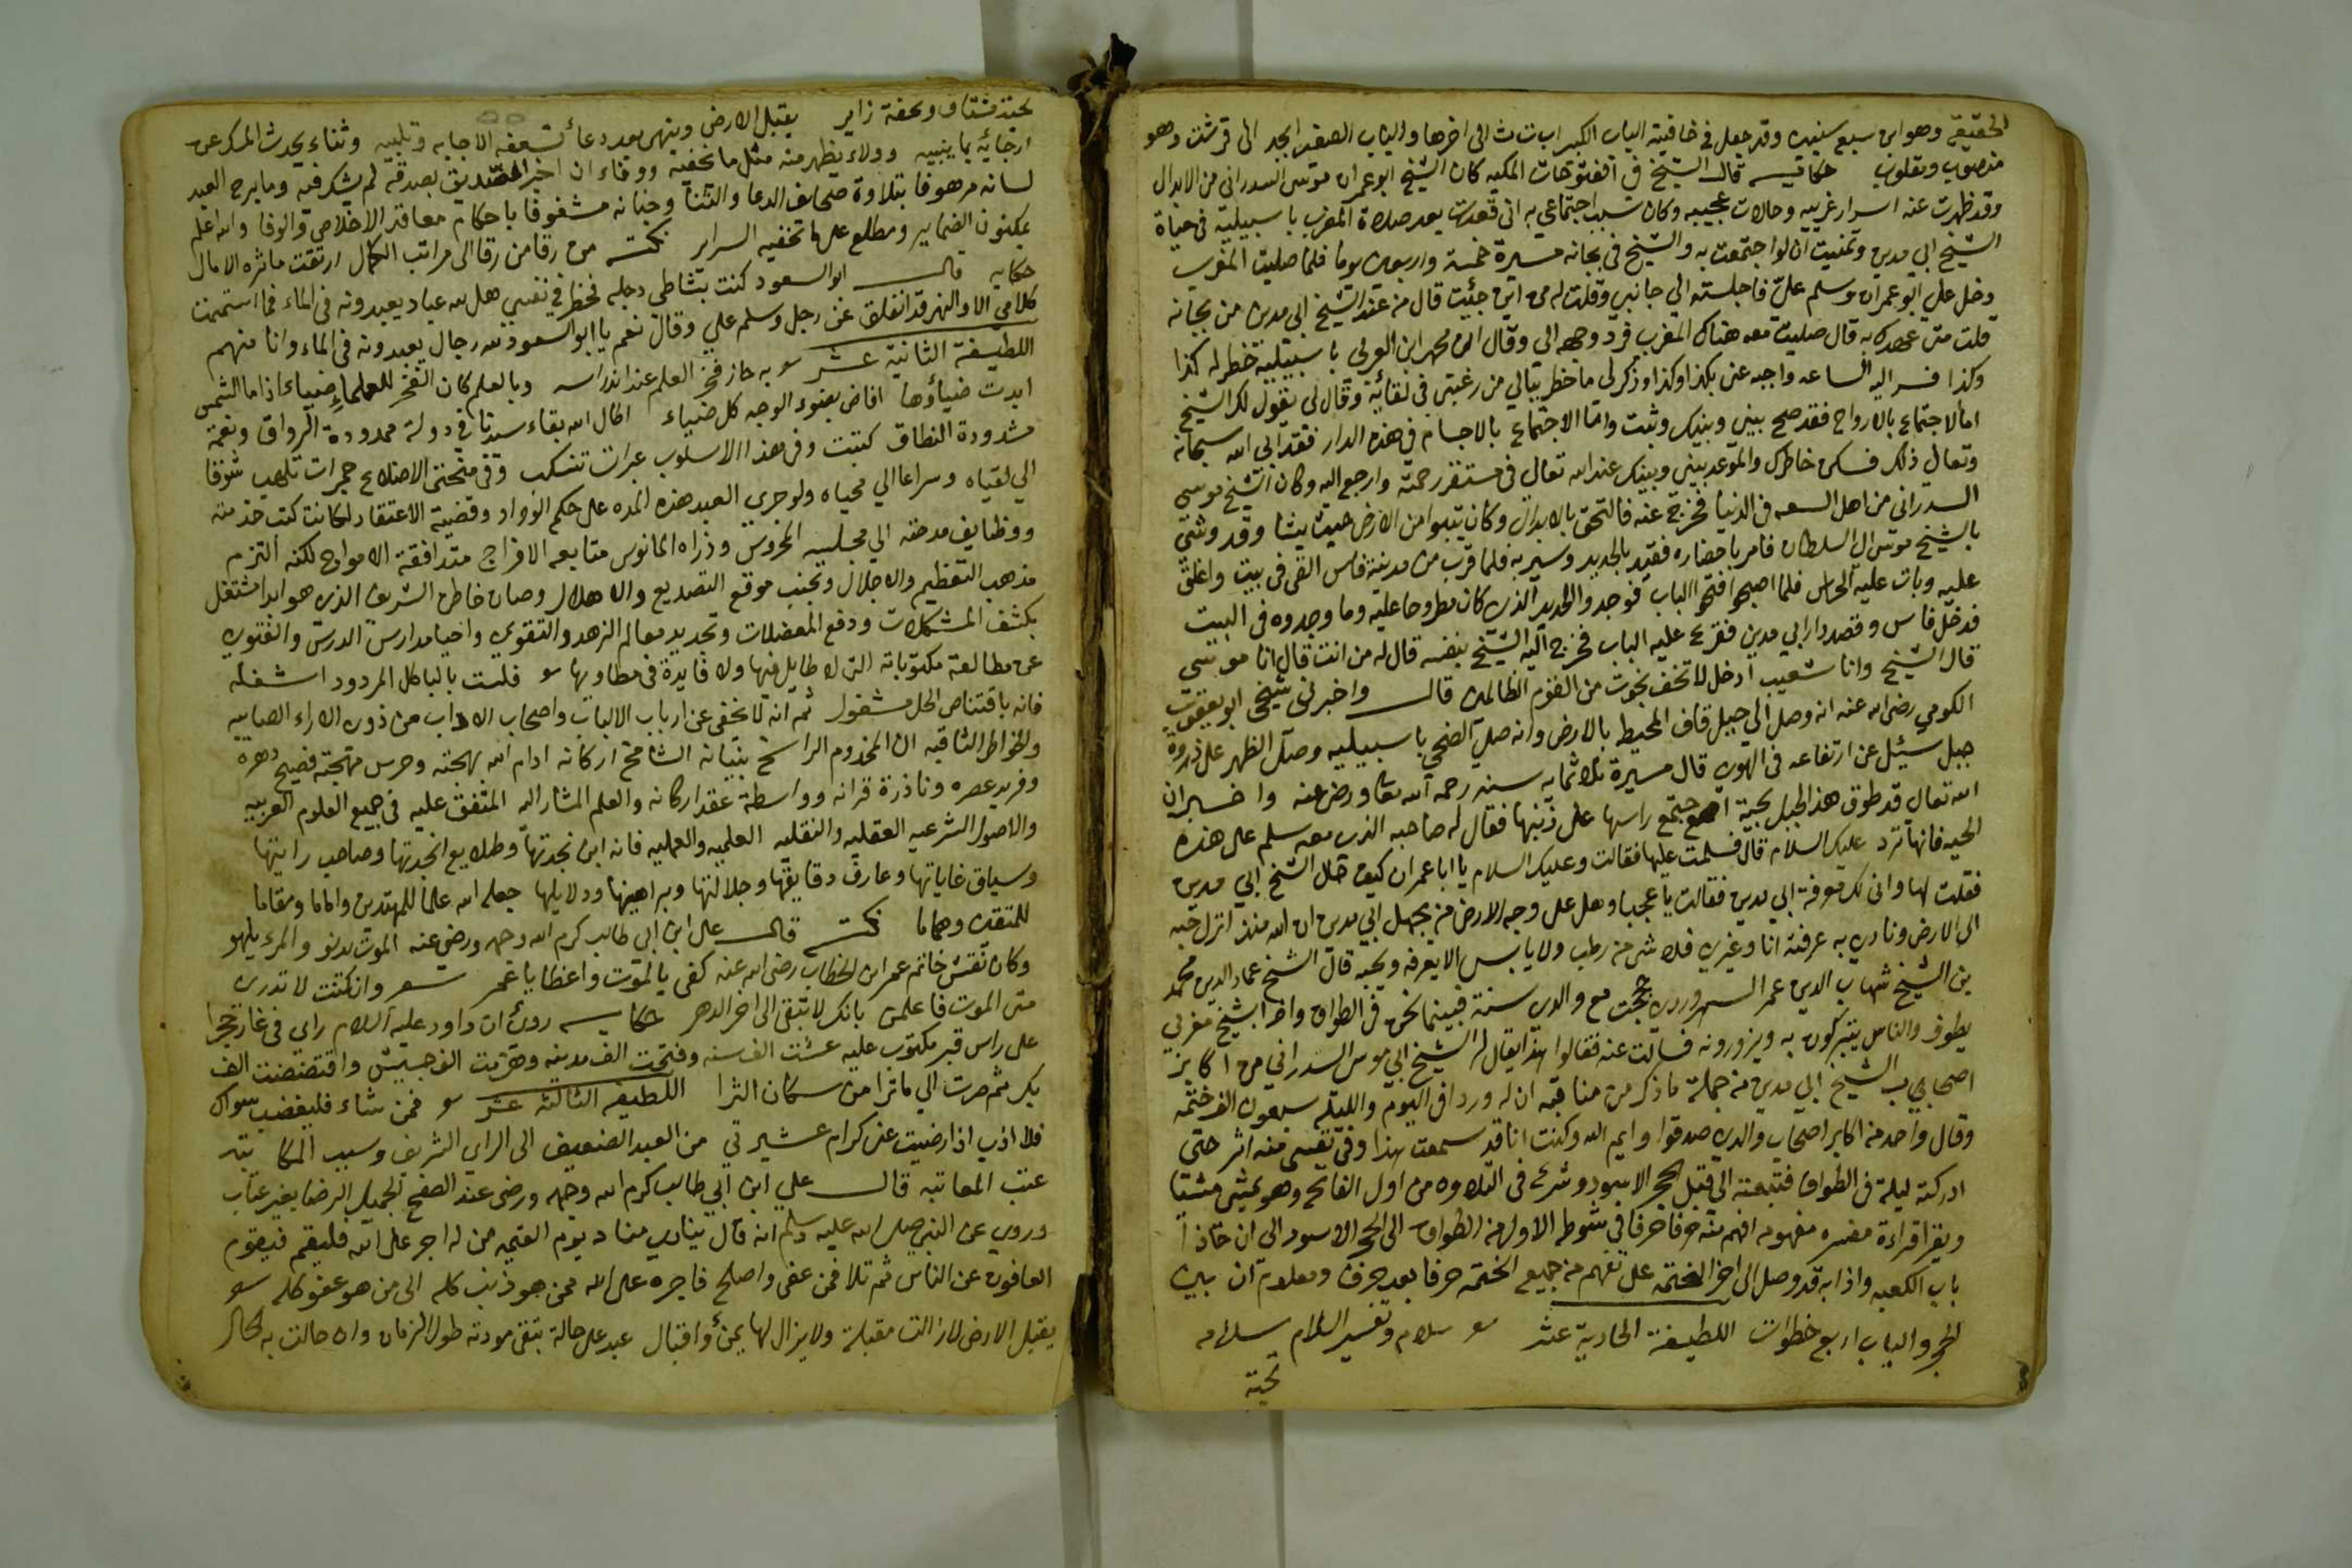 الحقيقي وهو ابن سبع سنين وقد جعل في خافيته الباب الكبير اب ت ث الى اخرها والباب الصغير ابجد الى قرشت وهو
منصوب ومقلوب حكايه قال الشيخ في الفتوحات المكيه كان الشيخ ابو عمران موسى السدراني من الابدال
وقد ظهرت عنه اسرار غريبه وحالات عجيبه وكان سبب اجتماعي به اني قعدت بعد صلاة المغرب باسبيلية في حياة
الشيخ ابي مدين وتمنيت ان لو اجتمعت به والشيخ في بجانه مسيرة خمسة واربعين يوما فلما صليت المغرب
دخل علي ابو عمران وسلم علي فاجلسته الي جانبي وقلت له من اين جئت قال من عند الشيخ ابي مدين من بجانه
قلت متى عهدك به قال صليت معه هناك المغرب فرد وجهه الي وقال ان محمد ابن العربي باسبيلية خطر له كذا
وكذا فسر اليه الساعه واجبه عني بكذا وكذا وذكر لي ما خطر ببالي من رغبتي في لقائه وقال لي يقول لك الشيخ
اما الاجتماع بالارواح فقد صح بيني وبينك وثبت واما الاجتماع بالاجسام في هذه الدار فقد ابى الله سبحانه
وتعالي ذلك فسكن خاطرك والموعد بيني وبينك عند الله تعالى في مستقر رحمته وارجع اليه وكان الشيخ موسى
السدراني من اهل السعه في الدنيا فخرج عنه فالتحق بالابدال وكان يتبوا من الارض حيث يشا وقد وشي
بالشيخ موسى الى السلطان فامر باحضاره فقيد بالحديد وسير به فلما قرب من مدينة فاس القي في بيت واغلق
عليه وبات عليه الحراس فلما اصبحوا فتحوا الباب فوجدوا الحديد الذي كان مطروحا عليه وما وجدوه في البيت
فدخل فاس وقصد دار ابي مدين فقرع عليه الباب فخرج اليه الشيخ بنفسه قال له من انت قال انا موسى
قال الشيخ وانا شعيب ادخل لا تخف نجوت من القوم الظالمين قال واخبرني شيخي ابو يعقوب
الكومي رضي الله عنه انه وصل الي جبل قاف المحيط بالارض وانه صلي الضحي باسبيليه وصلى الظهر على ذروة
جبل سئل عن ارتفاعه في الهوي قال مسيرة ثلاثمايه سنه رحمه الله تعالى ورضي عنه واخبر ان
الله تعالي قد طوق هذا الجبل بحية اجتمع راسها على ذنبها فقال له صاحبه الذي معه سلم على هذه
الحيه فانها ترد عليك السلام قال فسلمت عليها فقالت وعليك السلام يا ابا عمران كيف حال الشيخ ابي مدين
فقلت لها وانى لك معرفة ابي مدين فقالت يا عجبا وهل على وجه الارض من يجهل ابي مدين ان الله منذ انزل حبه
الى الارض ونادي به عرفته انا وغيري فلا شي من رطب ولا يابس الا يعرفه ويحبه قال الشيخ عماد الدين محمد
بن الشيخ شهاب الدين عمر السهروردي حججت مع والدي سنة فبينما نحن في الطواف واذا بشيخ مغربي
يطوف والناس يتبركون به ويزورونه فسالت عنه فقالوا هذا يقال له الشيخ ابي موسى السدراني من اكابر
اصحاب الشيخ ابي مدين من جملة ما ذكر من مناقبه ان له وردا في اليوم والليله سبعون الف ختمه
وقال واحد من اكابر اصحاب والدي صدقوا وايم الله وكنت انا قد سمعت بهذا وفي نفسي منه اثر حتى
ادركته ليلة في الطواف فتبعته الى قبل الحجر الاسود وشرع في التلاوه من اول الفاتحه وهو يمشي مشيا
ويقرا قراءة مفسره مفهومه افهم منه حرفا حرفا في شوطه الاول من الطواف الى الحجر الاسود الى ان حاذا
باب الكعبه واذا به قد وصل الى اخر الختمه على تفهم من جميع الختمه حرفا بعد حرف ومعلوم ان بين
الحجر والباب اربع خطوات اللطيفة الحادية عشر سلام وتفسير السلام سلامه
تحية
تحية مشتاق وتحفة زاير يقبل الارض وينهي بعد دعا تسعفه الاجابه وتلبيه وثناء يحدث المسك عن
ارجائه بما ينبيه وولاء يظهر منه مثل ما يخفيه ووفاء ان اخبر الصديق بصدقه لم يشك فيه وما برح العبد
لسانه مرهوفا بتلاوة صحايف الدعا والثنا وجنانه مشغوفا باحكام معاقد الاخلاص والوفا والله اعلم
بمكنون الضماير ومطلع على ما تخفيه السراير نكته من رقا من رقا الى مراتب الكمال ارتقت ماثره الامال
حكايه قال ابو السعود كنت بشاطي دجله فخطر في نفسي هل لله عباد يعبدونه في الماء فما استتممت
كلامي الا والنهر قد انفلق عن رجل وسلم علي وقال نعم يا ابو السعود لله رجال يعبدونه في الماء وانا منهم
اللطيفة الثانية عشر به حاز فخر العلم عند اندراسه وبالعلم كان الفخر للعلماء ضياء اذا ما الشمس
ابدت ضياؤها افاض بضوء الوجه كل ضياء اطال الله بقاء سيدنا في دولة ممدودة الرواق ونعمة
مشدودة النطاق كتبت وفي هذا الاسلوب عبرات تنسكب وفي منحني الاضلاع جمرات تلهب شوقا
الي لقياه وسراعا الي محياه ولو جرى العبد هذه المده على حكم الوداد وقضية الاعتقاد لكانت كتب خدمته
ووظايف مدحته الي مجلسه المحروس وذراه المانوس متتابعه الافواج متدافقة الامواج لكنه التزم
مذهب التعظيم والاجلال وتجنب موقع التصديع والاملال وصان خاطره الشريف الذي هو ابدا مشتغل
بكشف المشكلات ودفع المعضلات وتجديد معالم الزهد والتقوي واحيا مدارس الدرس والفتوى
عن مطالعة مكتوباته التي لا طايل فيها ولا فايدة في مطاويها قلت بالباكل المردود اشغله
فانه باقتناص الحل مشغول ثم انه لا يخفى عن ارباب الالباب واصحاب الاداب من ذوي الاراء الصايبه
والخواطر الثاقبه ان المخدوم الراسخ بنيانه الشامخ اركانه ادام الله بهجته وحرس مهجته فصيح دهره
وفريد عصره ونادرة قرانه وواسطة عقد اركانه والعلم المشار اليه المتفق عليه في جميع العلوم العربيه
والاصول الشرعيه العقليه والنقليه العلميه والعمليه فانه ابن نجدتها وطلايع انجدتها وصاحب رايتها
وسياق غاياتها وعارف دقايقها وجلالتها وبراهينها ودلايلها جعله الله علما للمهتدين واماما ومقاما
للمتقين وهماما نكته قال علي ابن ابي طالب كرم الله وجهه ورضي عنه الموت يدنو والمرء يلهو
وكان نقش خاتم عمر ابن الخطاب رضي الله عنه كفى بالموت واعظا يا عمر شعر وان كنت لا تدري
متى الموت فاعلمن بانك لا تبقى الى اخر الدهر حكايه روي ان داود عليه السلام راى في غار حجرا
على راس قبر مكتوب عليه عشت الف سنه وفتحت الف مدينه وهزمت الف جيش وافتضضت الف
بكر ثم صرت الي ما ترا من سكان الثرا اللطيفه الثالثه عشر فمن شاء فليغضب سواك
فلا اذي اذا رضيت عني كرام عشيرتي من العبد الضعيف الى الراي الشريف وسبب المكاتبه
عتب المعاتبه قال علي ابن ابي طالب كرم الله وجهه ورضي عنه الصفح الجميل الرضا بغير عتاب
وروي عن النبي صلى الله عليه وسلم انه قال ينادي مناد يوم القيمه من له اجر على الله فليقم فيقوم
العافون عن الناس ثم تلا فمن عفى واصلح فاجره على الله ممن هو ذنب كله الى من هو عفو كله
يقبل الارض لا زالت مقبلة ولا يزال لها يمن واقبال عبد على حالة تبقى مودته طول الزمان وان حالت به الحال